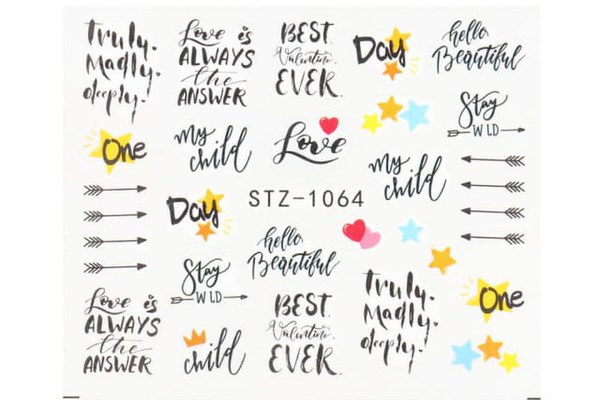 Truly.
Madly.
deeply.
Love is
ALWAYS
the
ANSWER
BEST.
Valentine
EVER.
Day
hello
Beautiful
Stay
WLD
One
my
child
Love
my
child
Day
STZ-1064
hello
Beautiful
Stay
WLD
Love is
ALWAYS
the
ANSWER
child
BEST.
Valentine
EVER.
Truly.
Madly.
deeply.
One